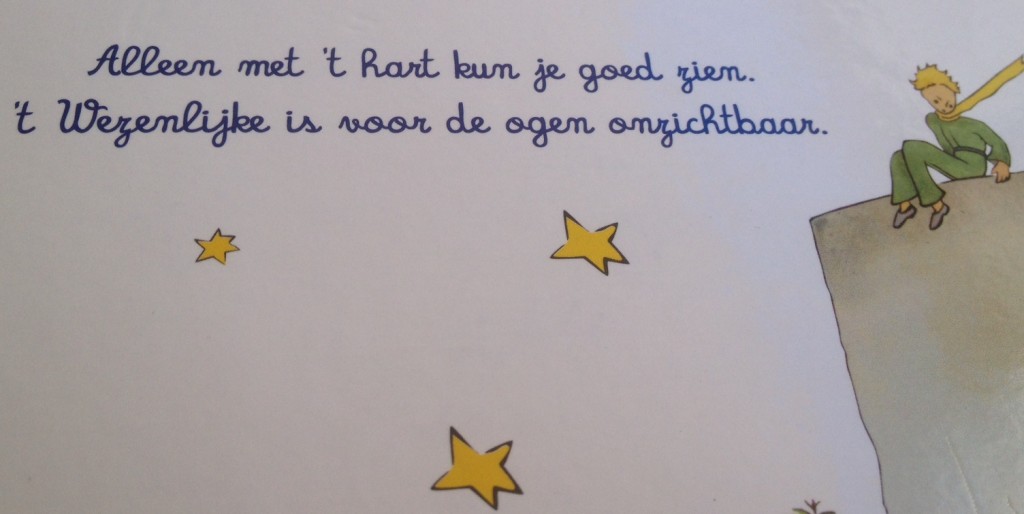 Alleen met 't hart kun je goed zien.
't Wezenlijke is voor de ogen onzichtbaar.